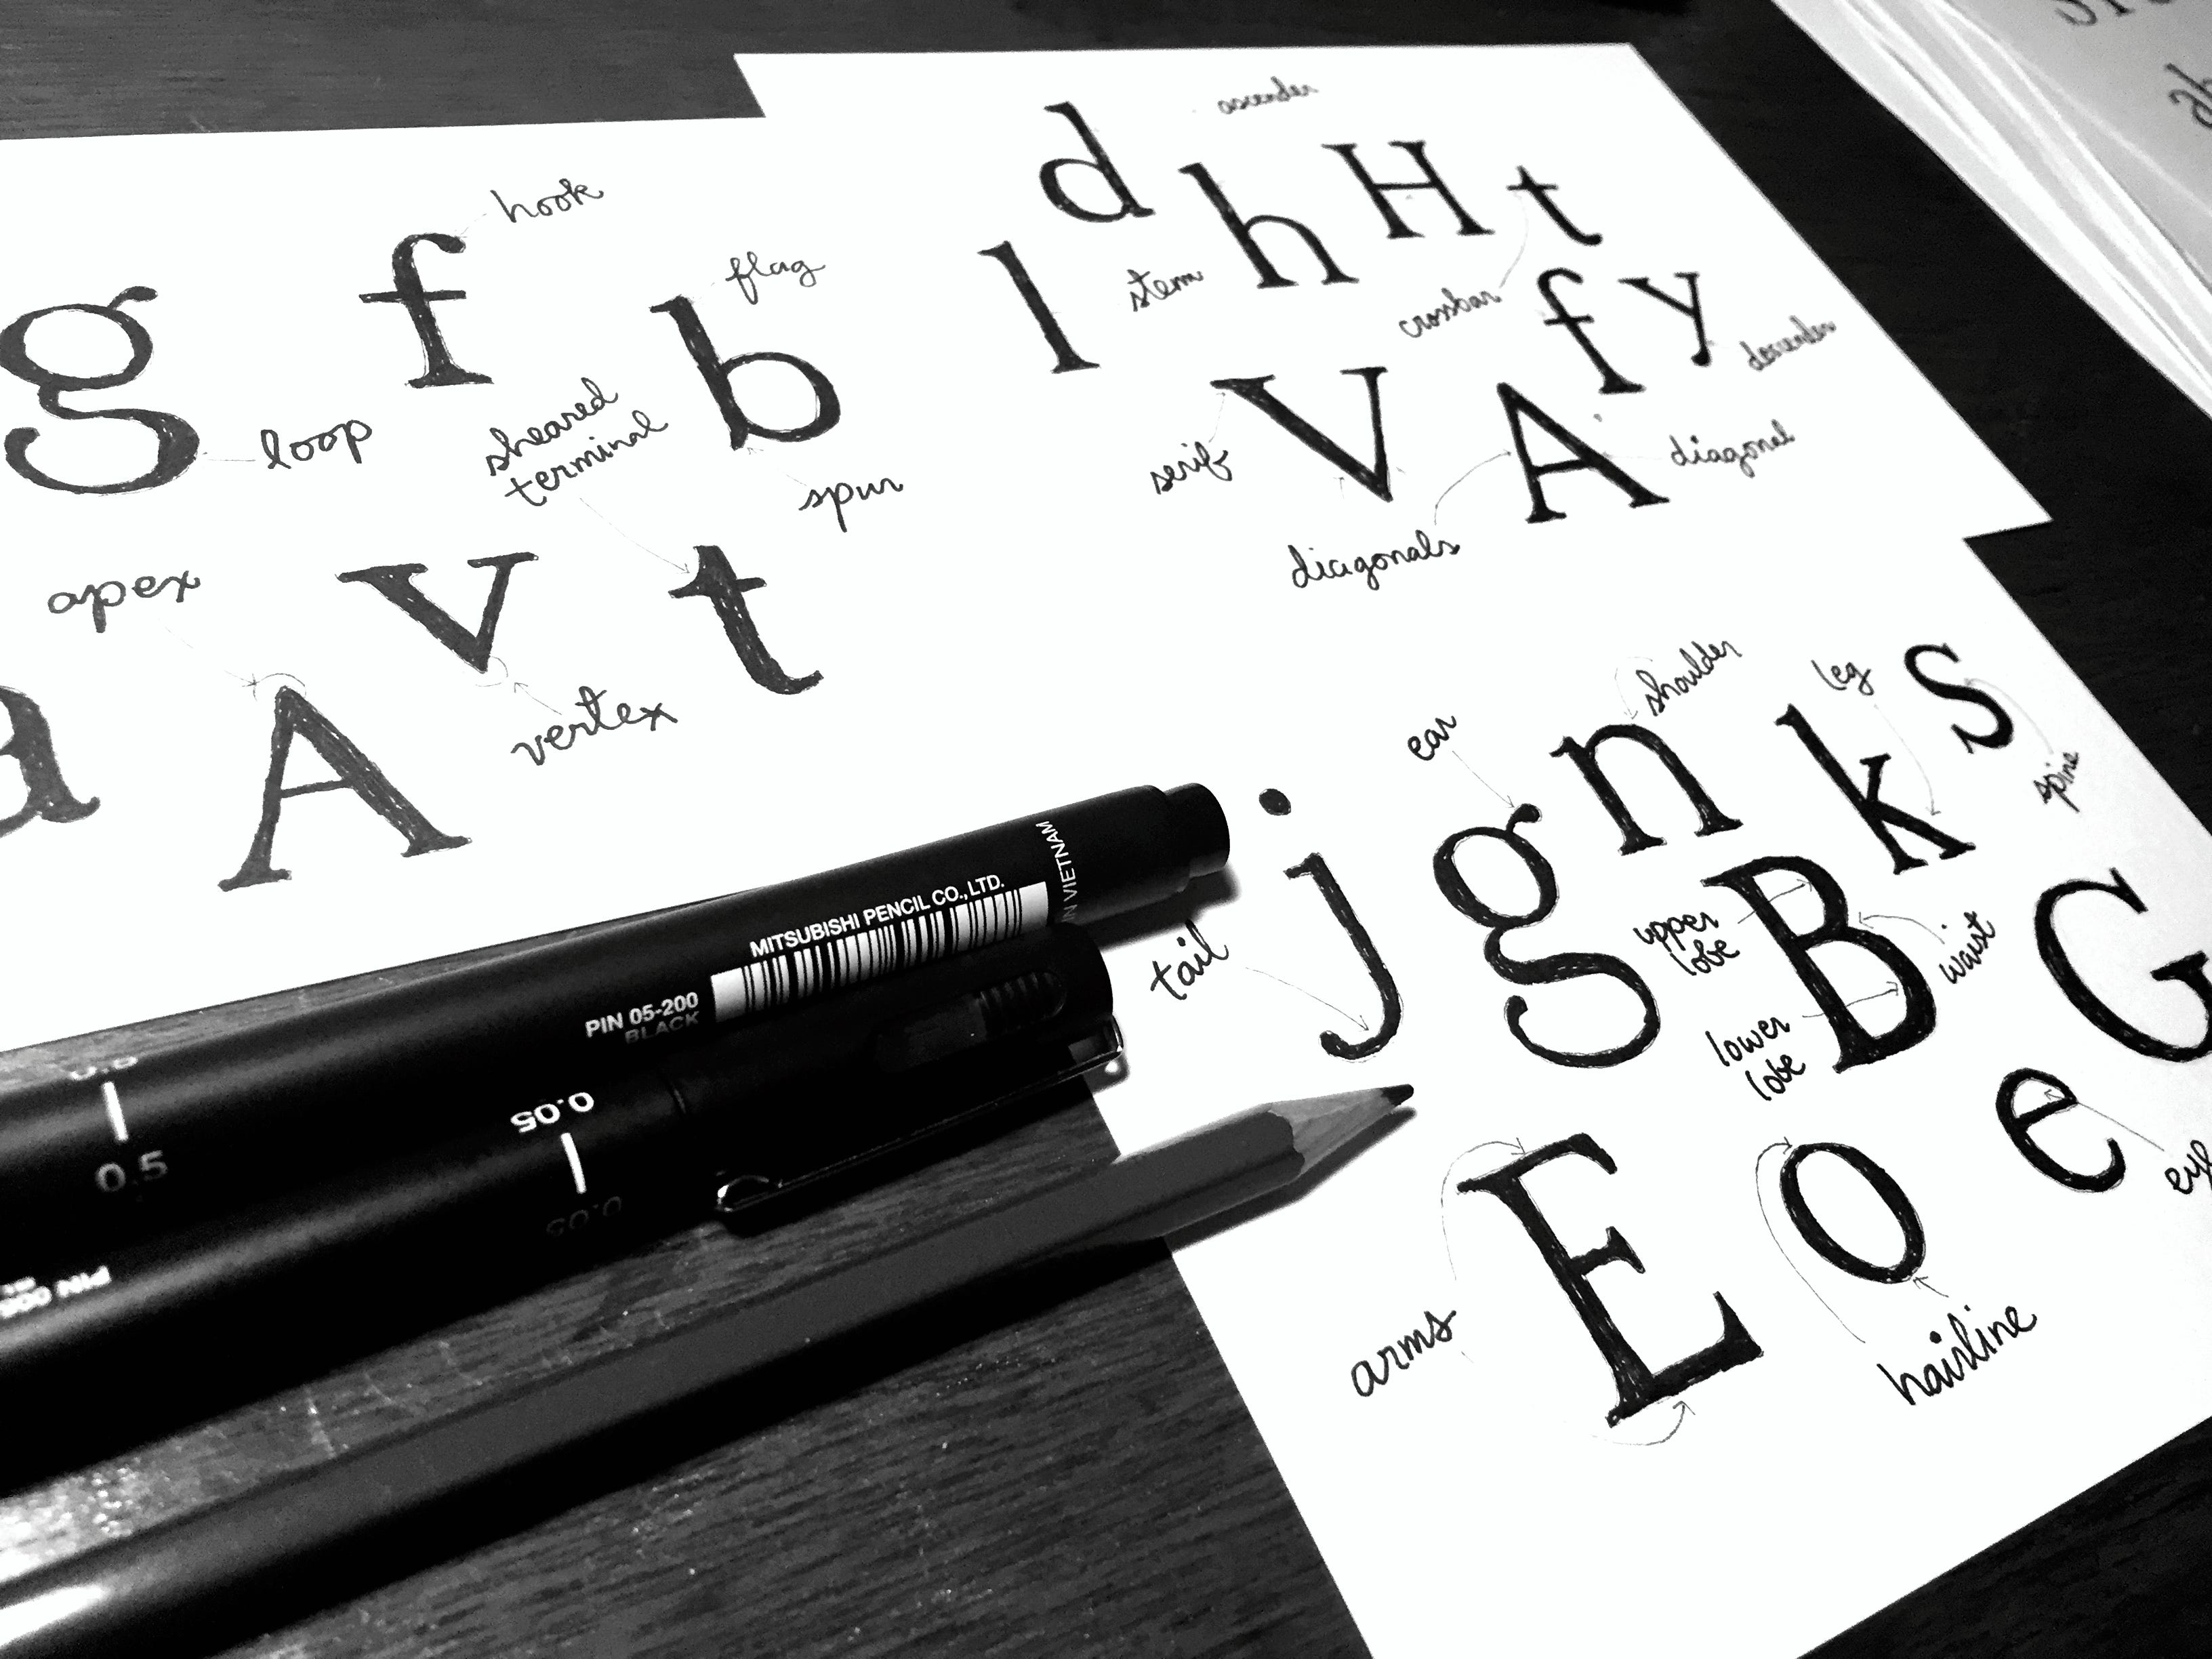 hook
g f
flag
b
loop
sheared
terminal
spur
apex
v t
vertex
a A
ascender
d
h H t
l
stem
crossbar
f y
descender
V A
serif
diagonal
diagonals
shoulder
leg
s
ear
n k
spine
j g
upper
lobe
B
waist
G
tail
lower
lobe
e
E o
arms
hairline
MITSUBISHI PENCIL CO., LTD.
IN VIETNAM
PIN 05-200
BLACK
0.05
0.5
0.05
PIN